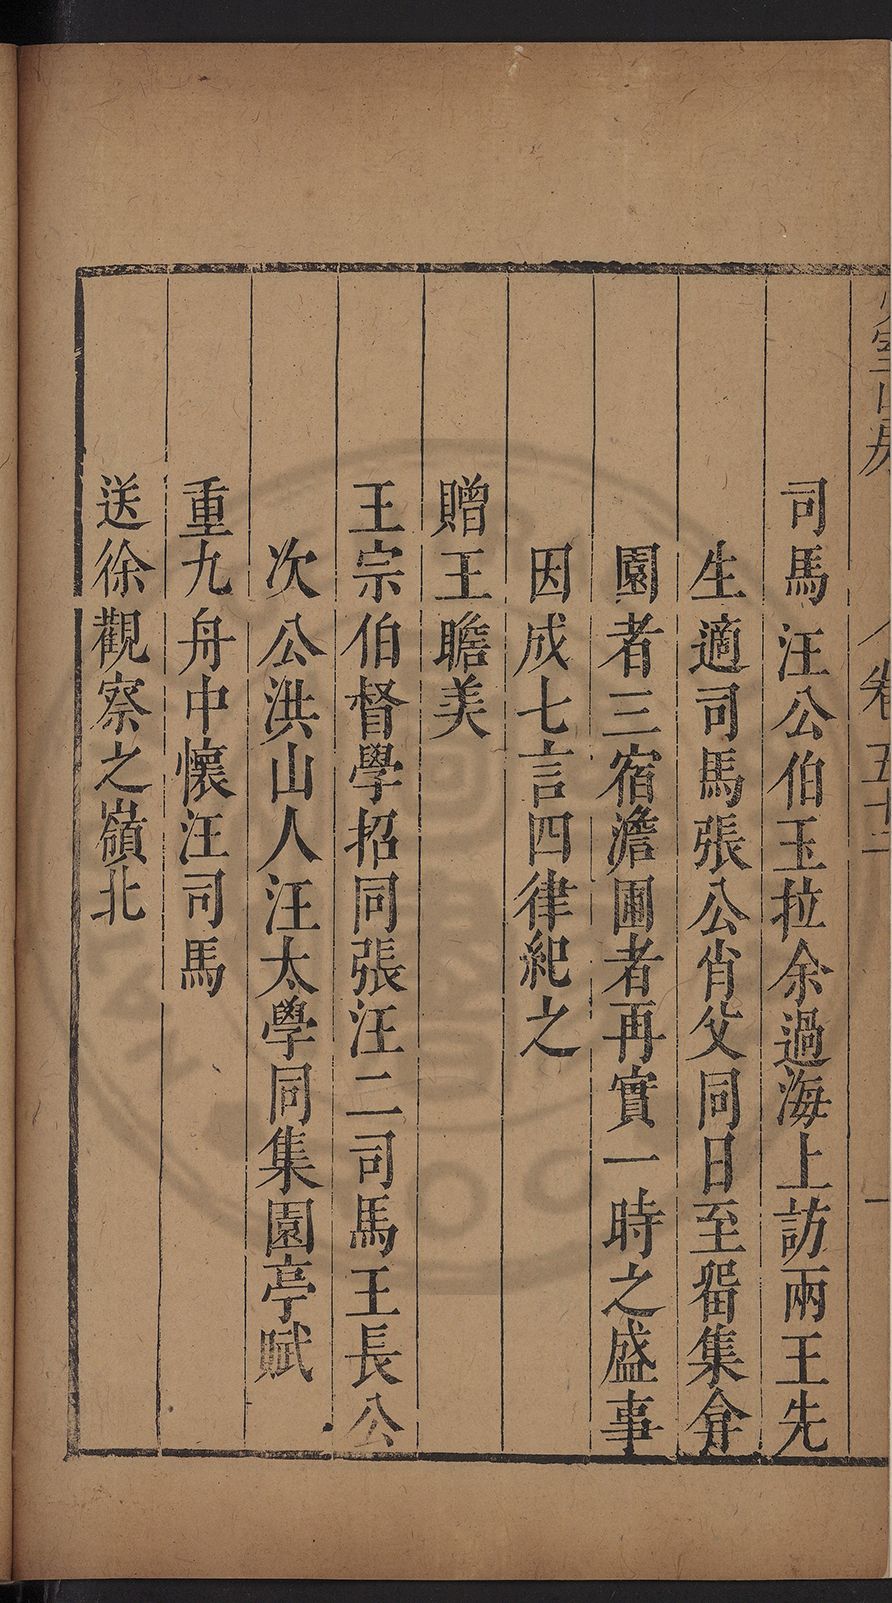 司馬汪公伯玉拉余過海上訪兩王先
生適司馬張公肖父同日至畱集弇
園者三宿澹圃者再實一時之盛事
因成七言四律紀之
贈王瞻美
王宗伯督學招同張汪二司馬王長公
次公洪山人汪太學同集園亭賦
重九舟中懷汪司馬
送徐觀察之嶺北